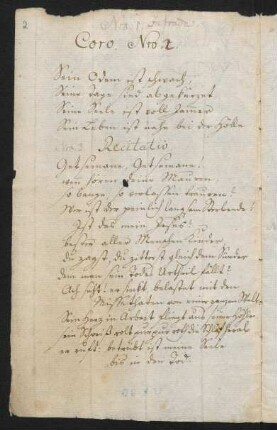 2
Nro. 1.
Coro. Nro. 1.
Sein Odem ist schwach,
Seine Tage sind abgekürzet
Seine Seele ist voll Jammer
Sein Leben ist nahe bei der Hölle
Recitativ
Gethsemane, Gethsemane!
wen hören deine Mauren
so bange, so verlassen trauren!
Wer ist der peinlich langsam Sterbende?
Ist das mein Jesus?
bester aller Menschen Kinder
du zagst, du zitterst gleich dem Sünder
dem man sein Todes Urtheil fällt!
Ach seht! er sinkt belastet mit den
Missethaten von einer ganzen Welt
Sein Herz in Arbeit fliegt aus seiner Höhle
sein Schweiß rollt purpurroth die Schläf herab
er ruft: betrübt ist meine Seele
bis in den Tod.